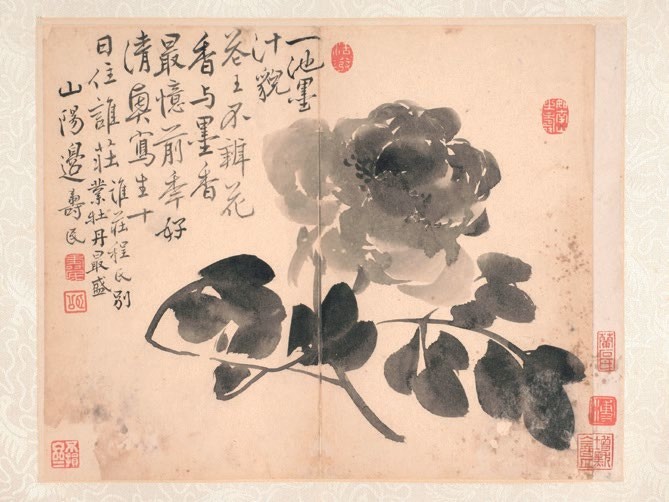 一池墨
汁貌
花王不辨花
香与墨香
最憶前年好
清興寫生十
日住誰莊
誰莊程氏別
業牡丹最盛
山陽邊壽民